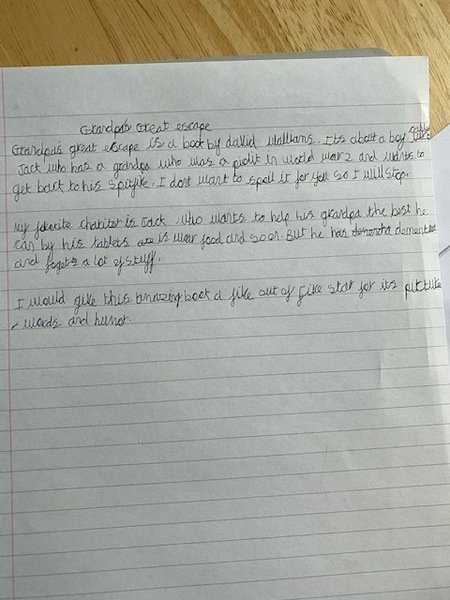 Grandpa's Great escape
Grandpa's great escape is a book by david walliams. Its about a boy called
Jack who has a grandpa who was a piolit in world war 2 and wants to
get back to his spitfire. I dont want to spoil it for you so I will stop.
My faverite charicter is Jack who wants to help his grandpa the best he
can by his tablets is war food and so on. But he has dementia
and forgets a lot of stuff.
I would give this amazing book a five out of five star for its picture
, words and humor.